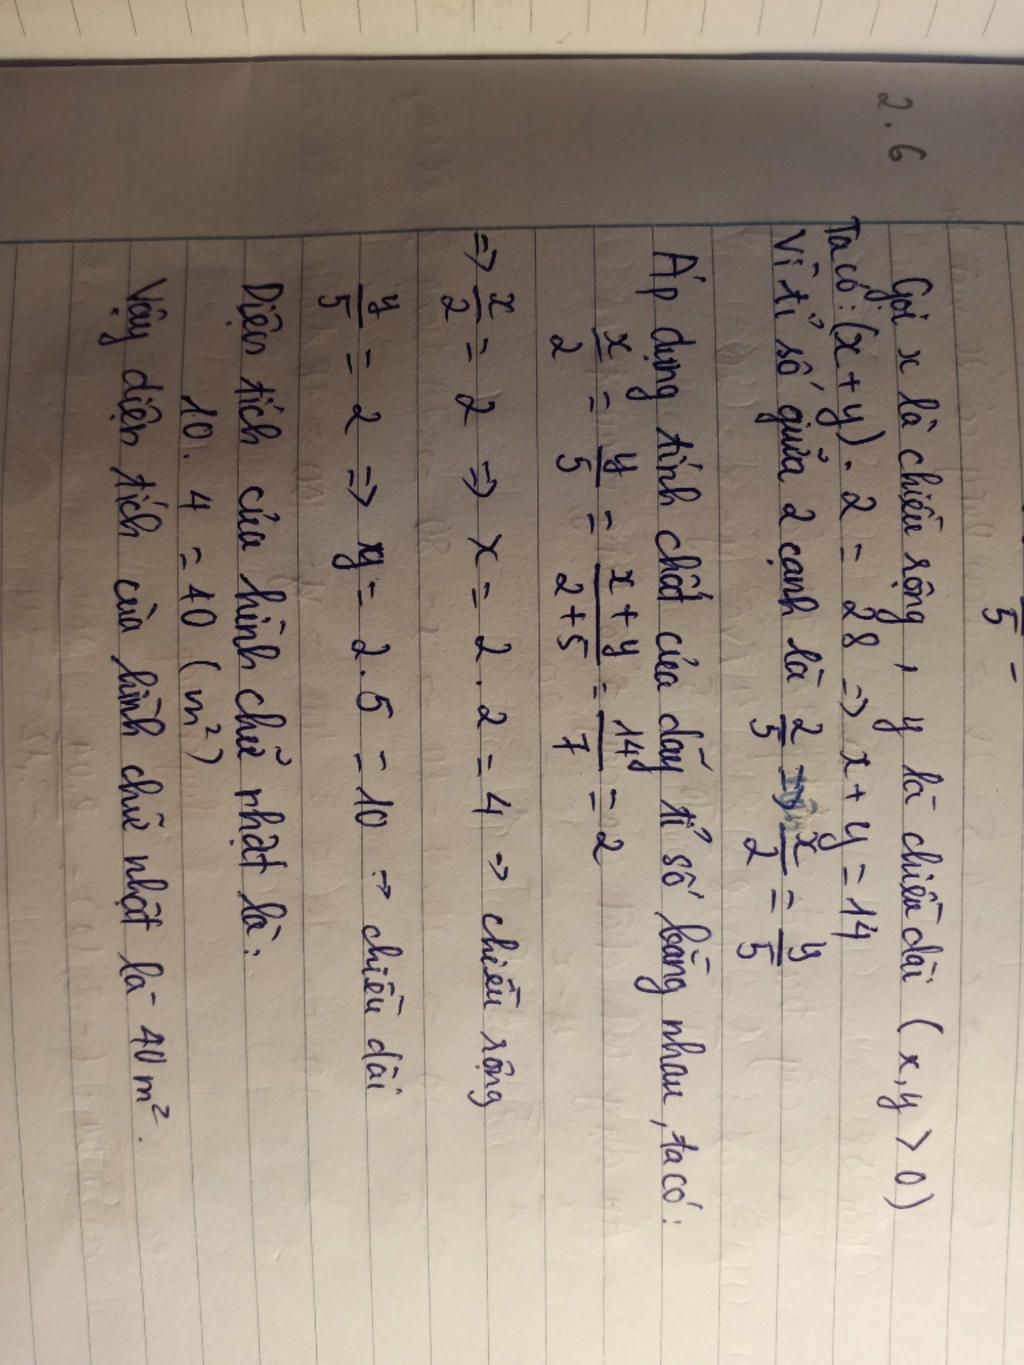 5
2.6
Gọi x là chiều rộng, y là chiều dài (x, y > 0)
Ta có: (x + y) . 2 = 28 => x + y = 14
Vì tỉ số giữa 2 cạnh là 2/5 => x/2 = y/5
Áp dụng tính chất của dãy tỉ số bằng nhau, ta có:
x/2 = y/5 = x + y/2 + 5 = 14/7 = 2
=> x/2 = 2 => x = 2 . 2 = 4 → chiều rộng
y/5 = 2 => y = 2 . 5 = 10 → chiều dài
Diện tích của hình chữ nhật là:
10 . 4 = 40 (m²)
Vậy diện tích của hình chữ nhật là 40 m².